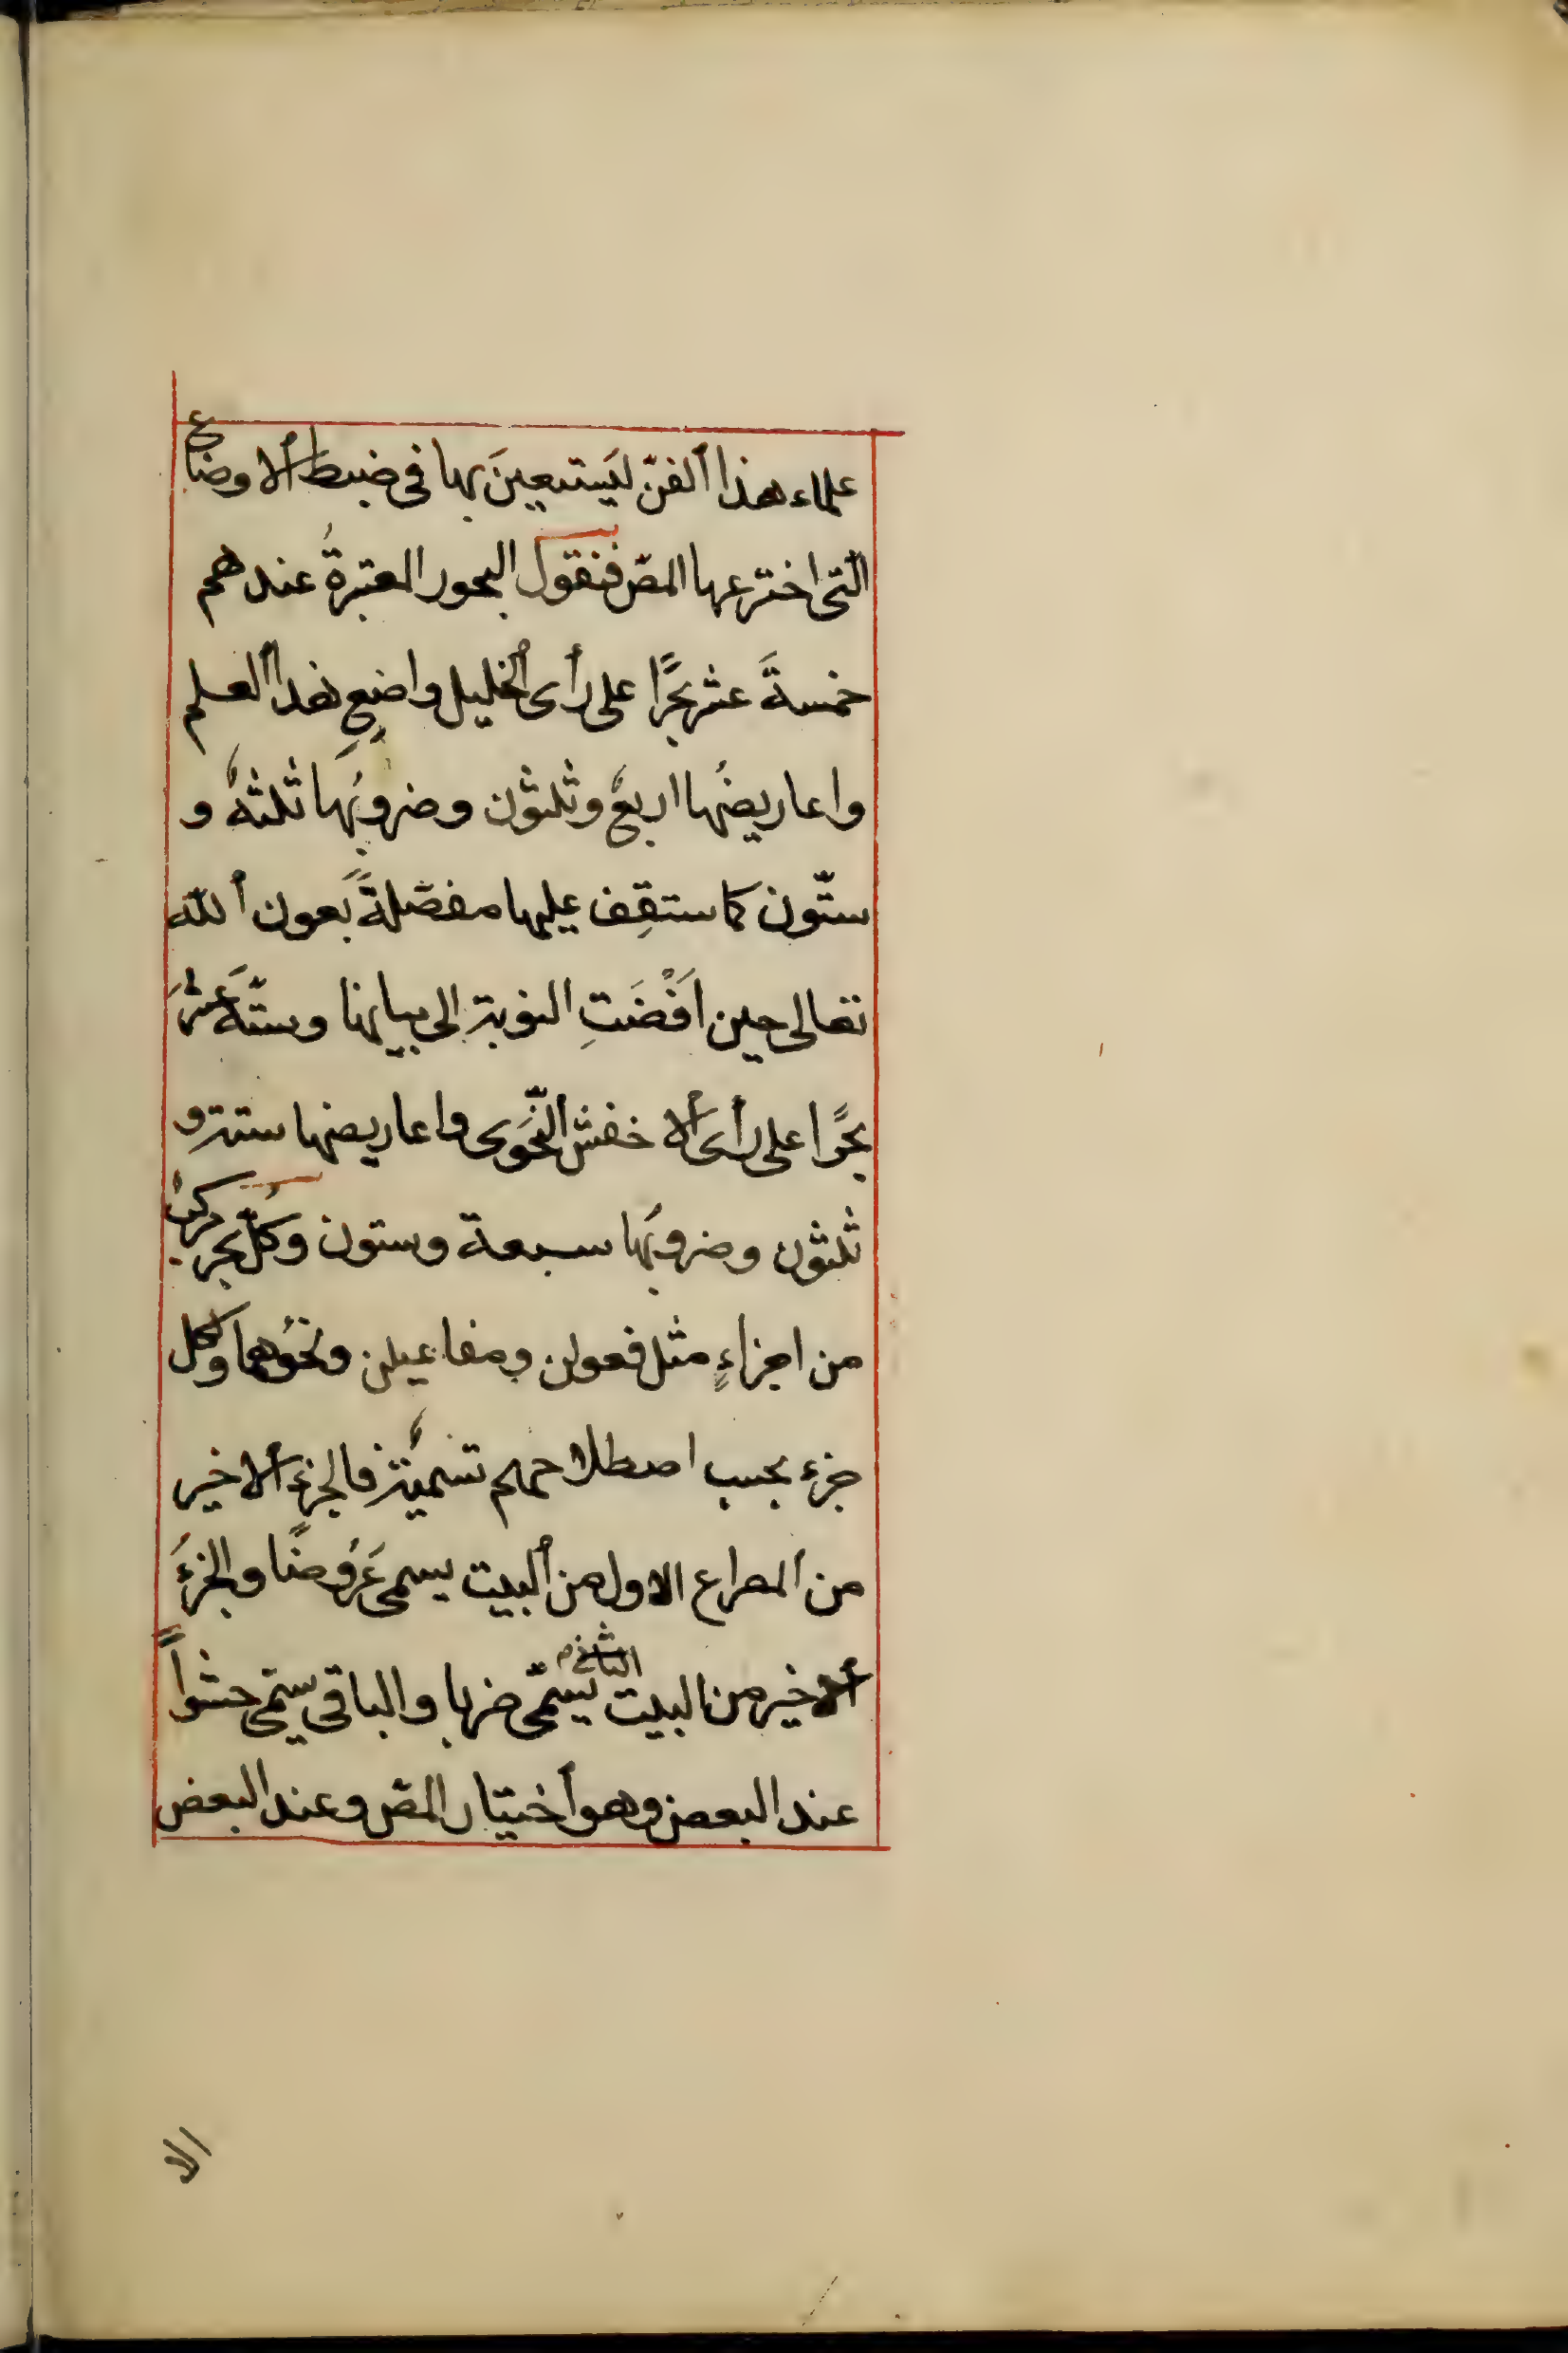 علماء هذا الفنّ ليَستعينَ بها فى ضبط الاوضاع
الّتى اخترعها المصّ فنقول البحور المعتبرةُ عندهم
خمسةَ عشر بحرًا على رأى الخليل واضعِ هذا العلم
واعاريضُها اربعٌ وثلثون وضروبُها ثلثةٌ و
ستّون كما ستقِف عليها مفصّلةً بعون اللّه
تعالى حين اَفْضَتِ النوبة الى بيانها وستّةَ عشرَ
بحرًا على رأى الاخفش النّحَوى واعاريضها ستة و
ثلثون وضروبُها سبعة وستون وكلُّ بحر مركبٌ
من اجزاءٍ مثل فعولن ومفاعيلن ونحوُهما ولكل
جزء بحسب اصطلاحهم تسميةٌ فالجزءُ الاخير
من المصراع الاول من البيت يسمى عَرُوضًا والجزءُ
الاخير من البيت الثانى يسّمى ضربا والباقى يسمّى حشواً
عند البعض وهو اختيار المصّ وعند البعض
الا